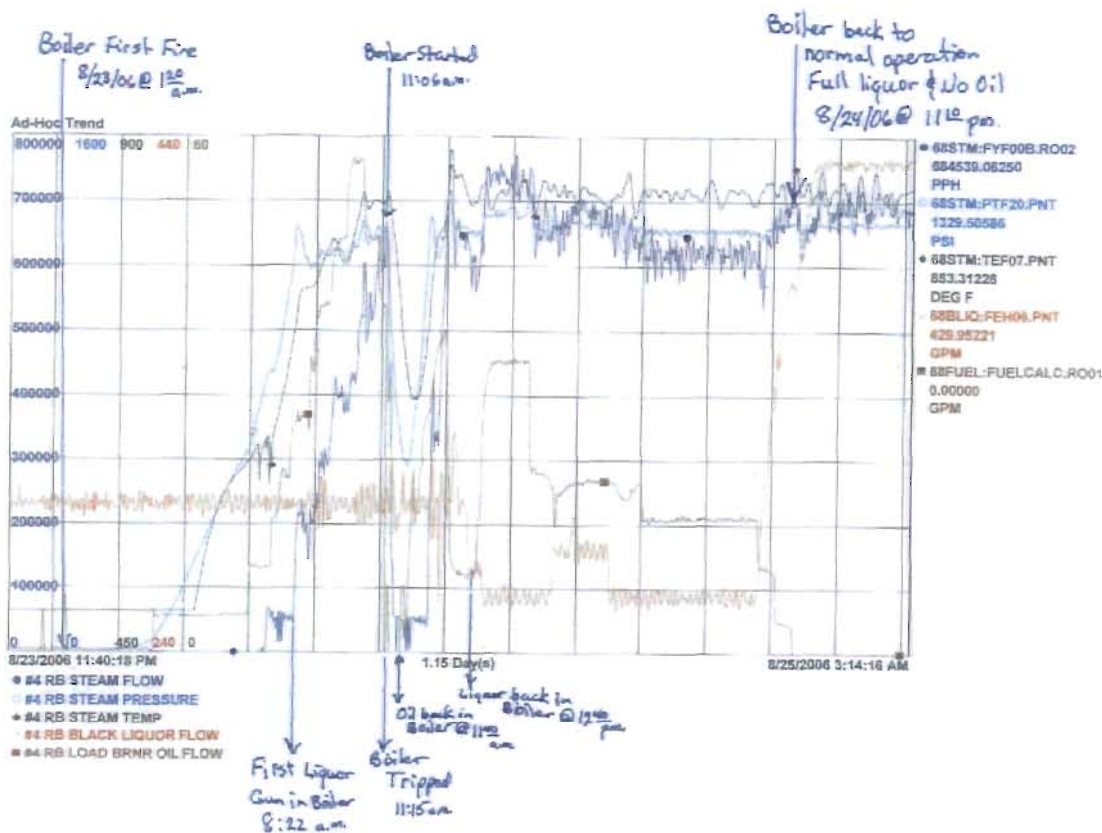 Boiler First Fire
8/23/06 @ 1 20
a.m.
Boiler Started
11:06 a.m.
Boiler back to
normal operation
Full liquor & No Oil
8/24/06 @ 11 10 pm.
Ad-Hoc Trend
800000 1600 900 440 50
700000
600000
500000
400000
300000
200000
100000
0 0 450 240 0
8/23/2006 11:40:18 PM
1.15 Day(s)
8/25/2006 3:14:16 AM
68STM:FYF00B.RO02
684539.06250
PPH
68STM:PTF20.PNT
1329.50586
PSI
68STM:TEF07.PNT
853.31226
DEG F
68BLIQ:FEH06.PNT
429.95221
GPM
68FUEL:FUELCALC.RO01
0.00000
GPM
#4 RB STEAM FLOW
#4 RB STEAM PRESSURE
#4 RB STEAM TEMP
#4 RB BLACK LIQUOR FLOW
#4 RB LOAD BRNR OIL FLOW
First Liquor
Gun in Boiler
8:22 a.m.
Boiler
Tripped
11:15 am
Oil back in
Boiler @
am
Liquor back in
Boiler @
pm